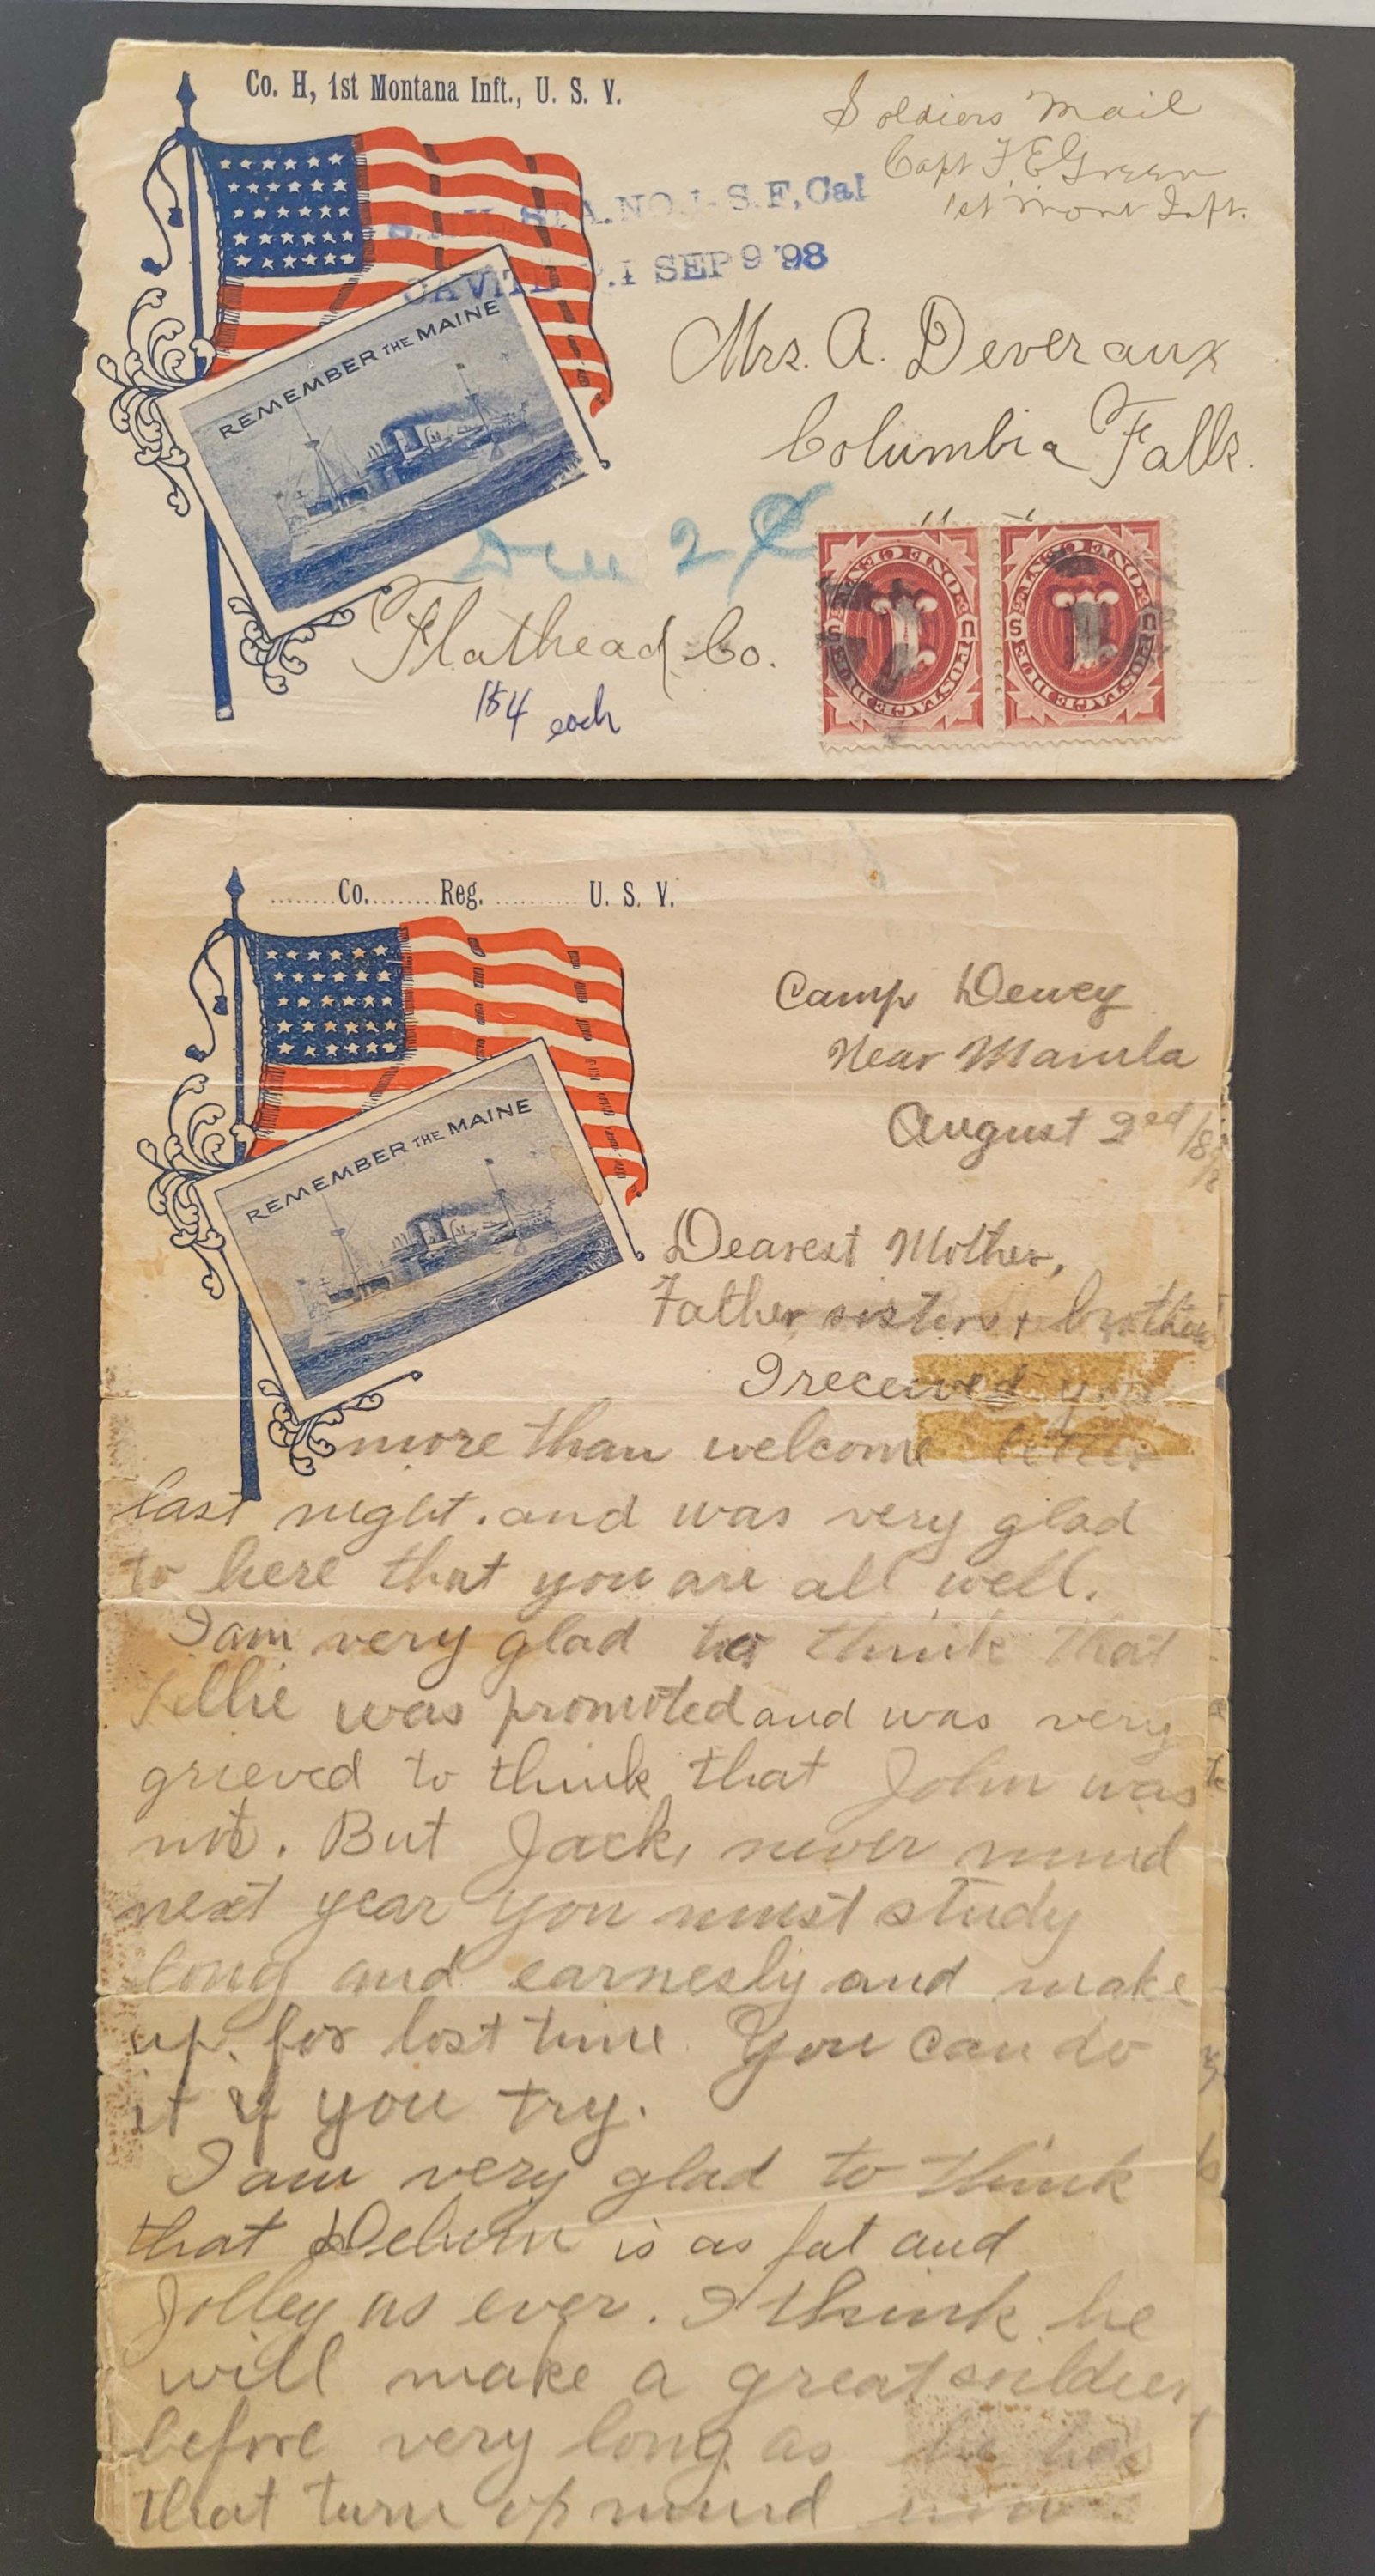 Co. H, 1st Montana Inft., U. S. V.
Soldiers Mail
Capt F. E Green
1st Mont Inft.
STA. NO. 1. S.F, Cal
CAVITE P.I SEP 9 '98
REMEMBER THE MAINE
Mrs. A. Deveraux
Columbia Falls.
Due 2¢
Flathead Co.
154 each
POSTAGE DUE
ONE CENT
1
U S
POSTAGE DUE
ONE CENT
1
U S
........Co.........Reg. ........... U. S. V.
REMEMBER THE MAINE
Camp Dewey
Near Manila
August 2nd/98
Dearest Mother,
Father sisters + brothers
I received your
more than welcome letter
last night. and was very glad
to here that you are all well.
I am very glad to think that
was promoted and was very
grieved to think that John was
not. But Jack, never mind
next year you must study
long and earnesly and make
up for lost time. You can do
it if you try.
I am very glad to think
that is as fat and
Jolley as ever. I think he
will make a great soldier
before very long as he has
that turn of mind now